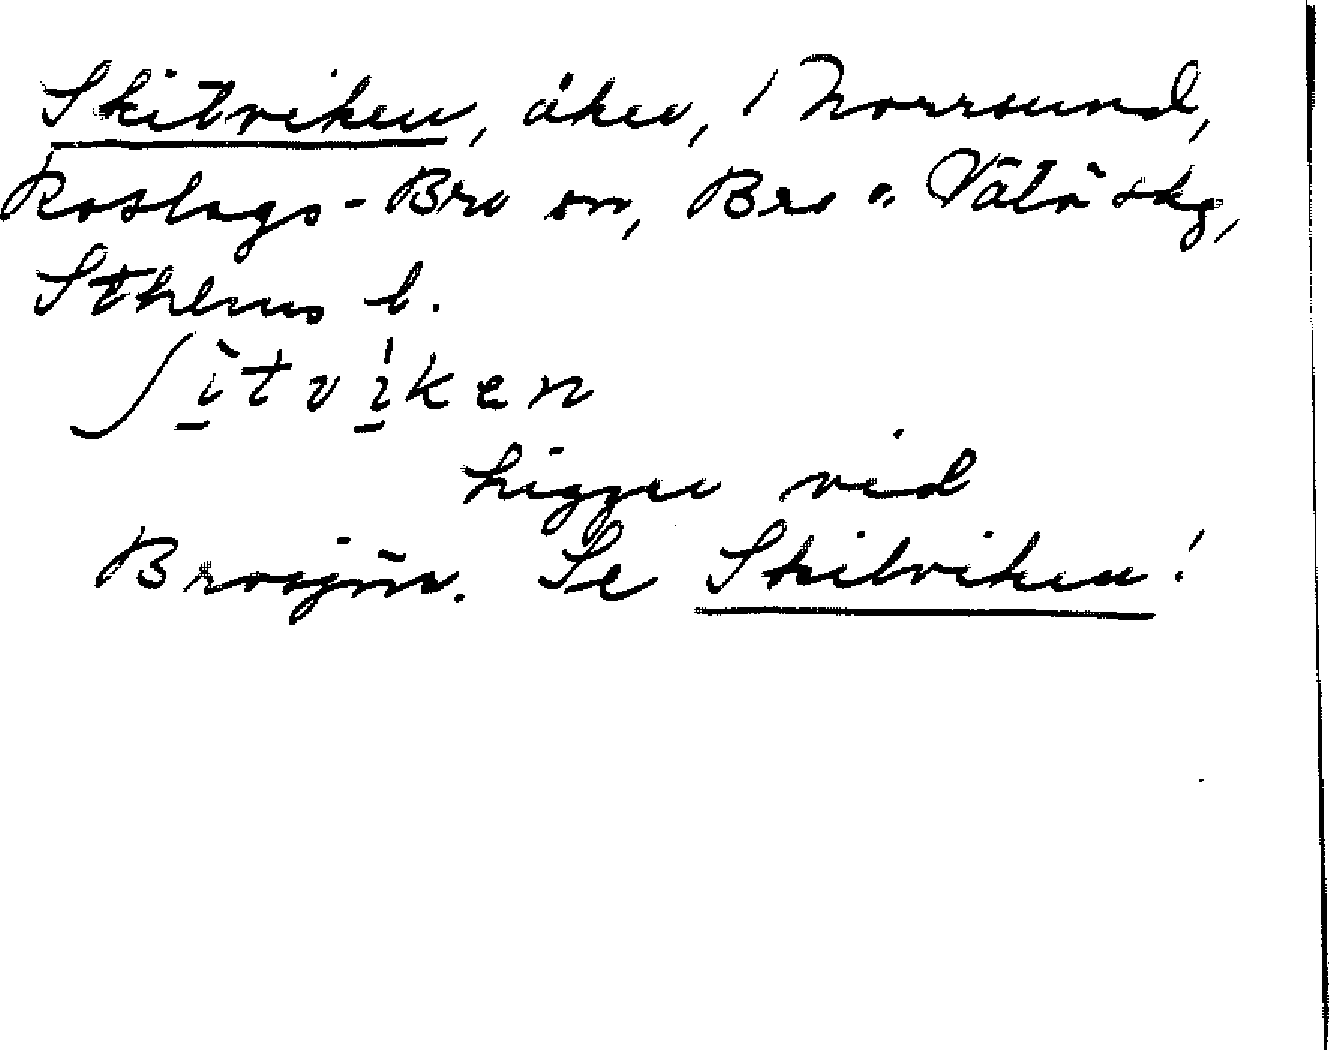 Skitviken, åker, 1 Norrsund,
Roslags-Bro sn, Bro o. Vätö skg,
Sthlms l.
ʃì̱tvi̱̍ken
Ligger vid
Brosjön. Se Skitviken!